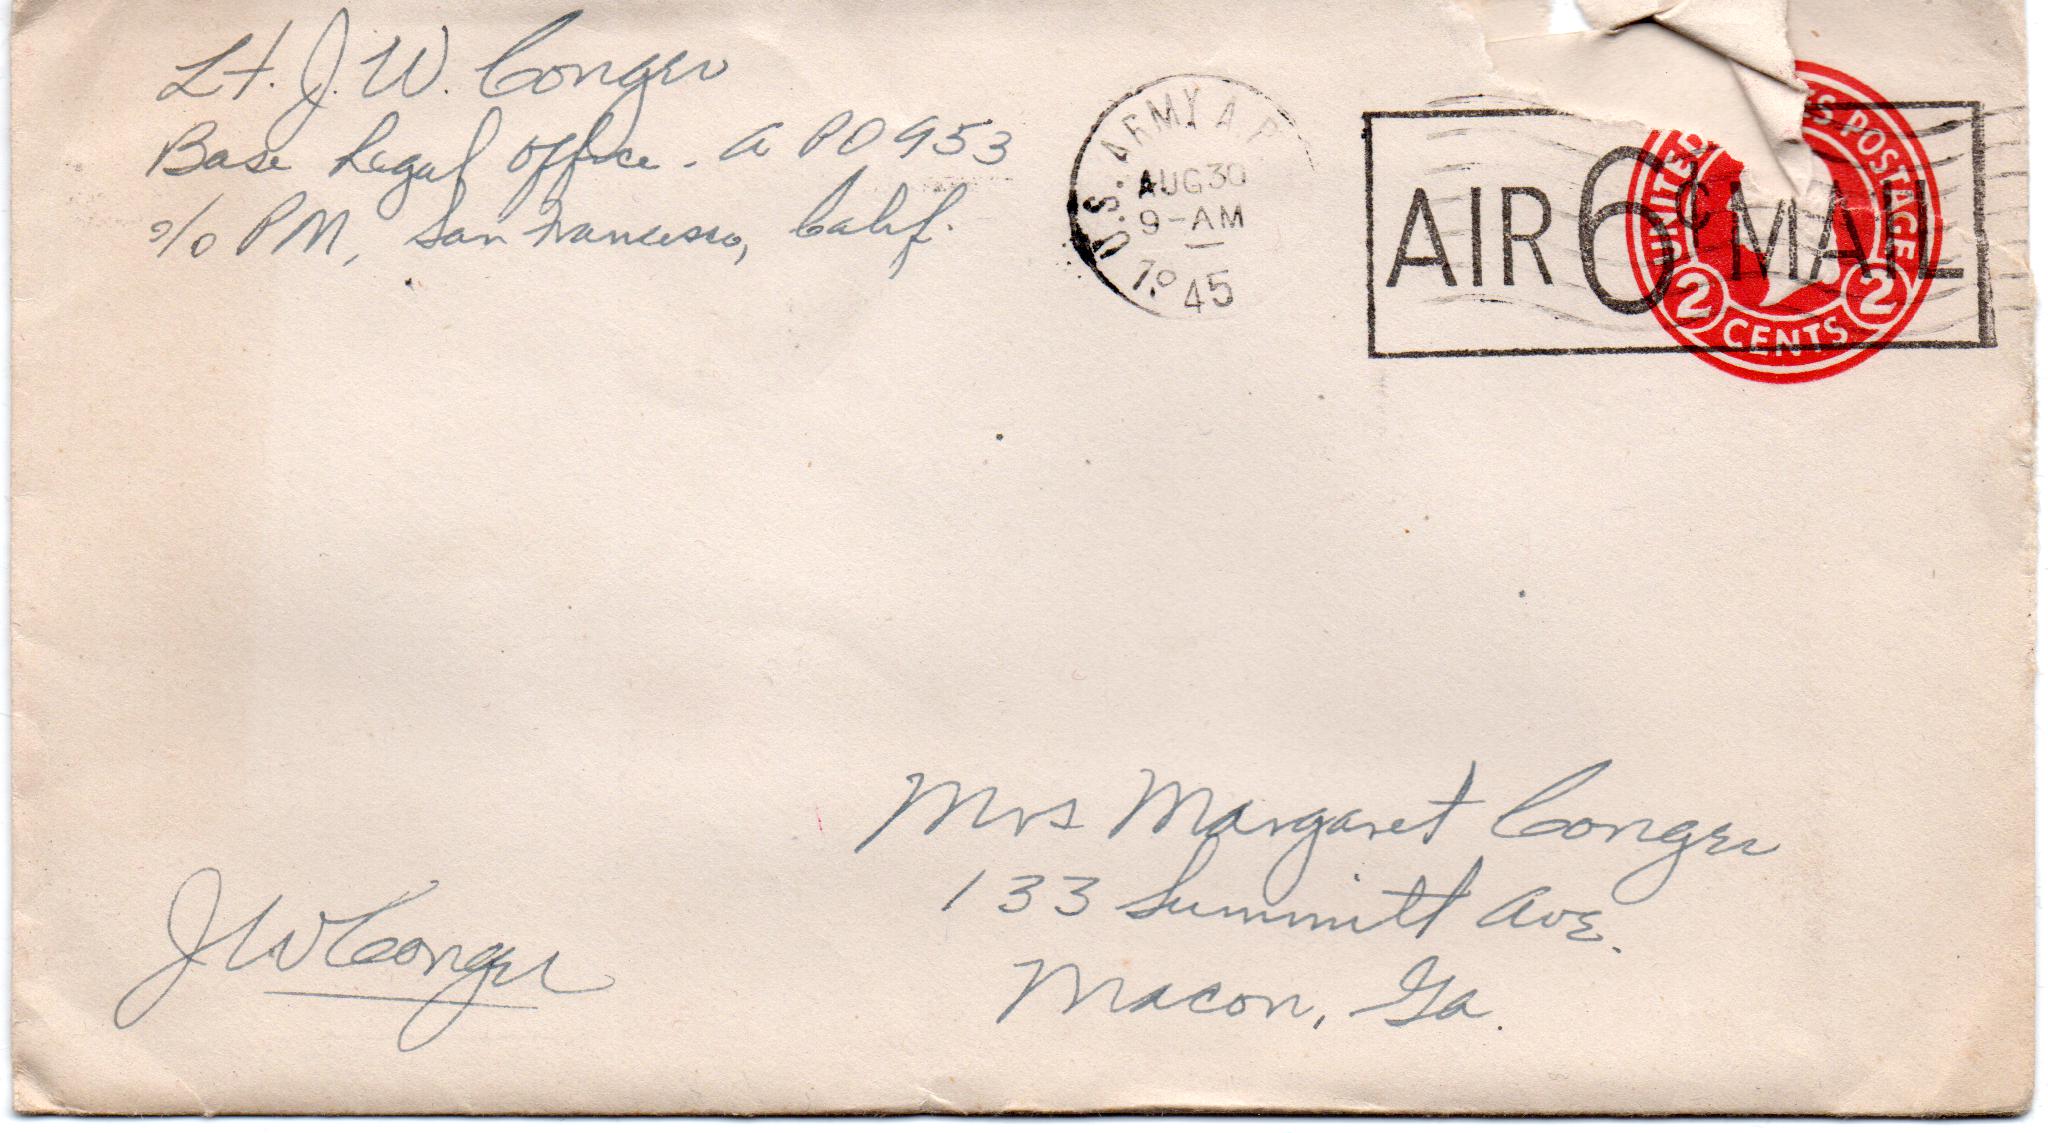 Lt. J. W. Conger
Base Legal Office - APO 953
c/o PM, San Francisco, Calif.
U.S. ARMY A.P.
AUG 30
9-AM
1945
AIR 6¢ MAIL
UNITED ES POSTAGE
2 CENTS 2
Mrs Margaret Conger
133 Summitt Ave.
Macon, Ga.
JW Conger